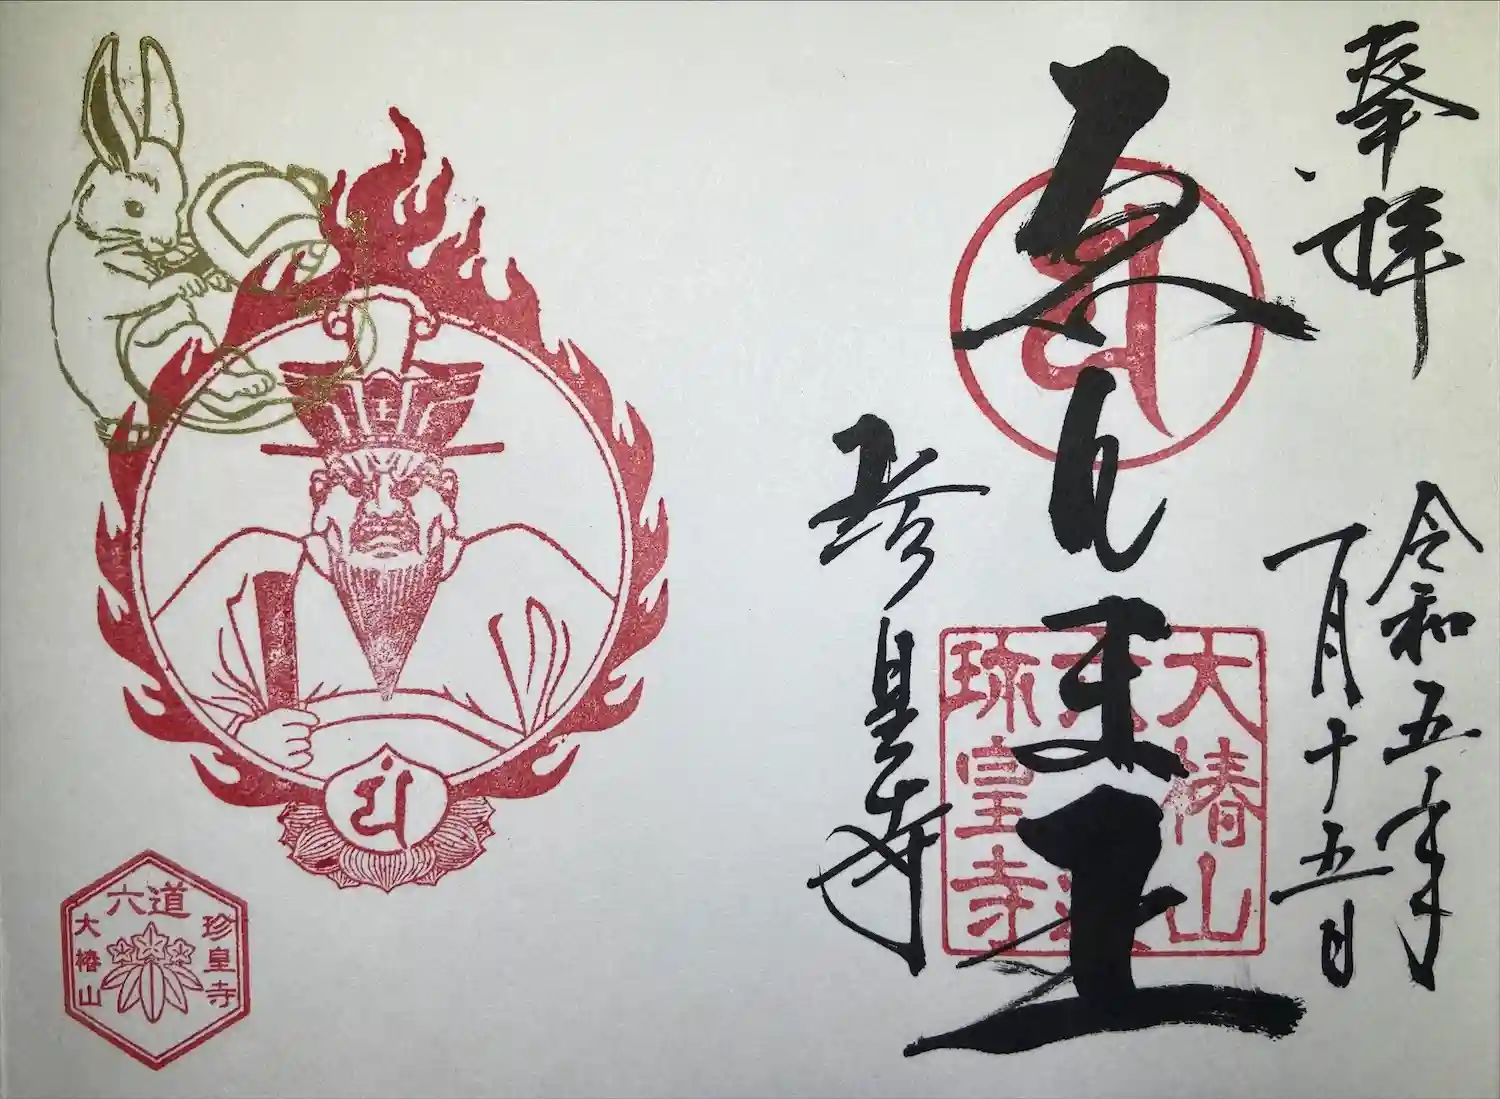 奉拝
令和五年
一月十五日
ゑんま王
珍皇寺
大椿山
六道
珎皇寺
六道
珍皇寺
大椿山